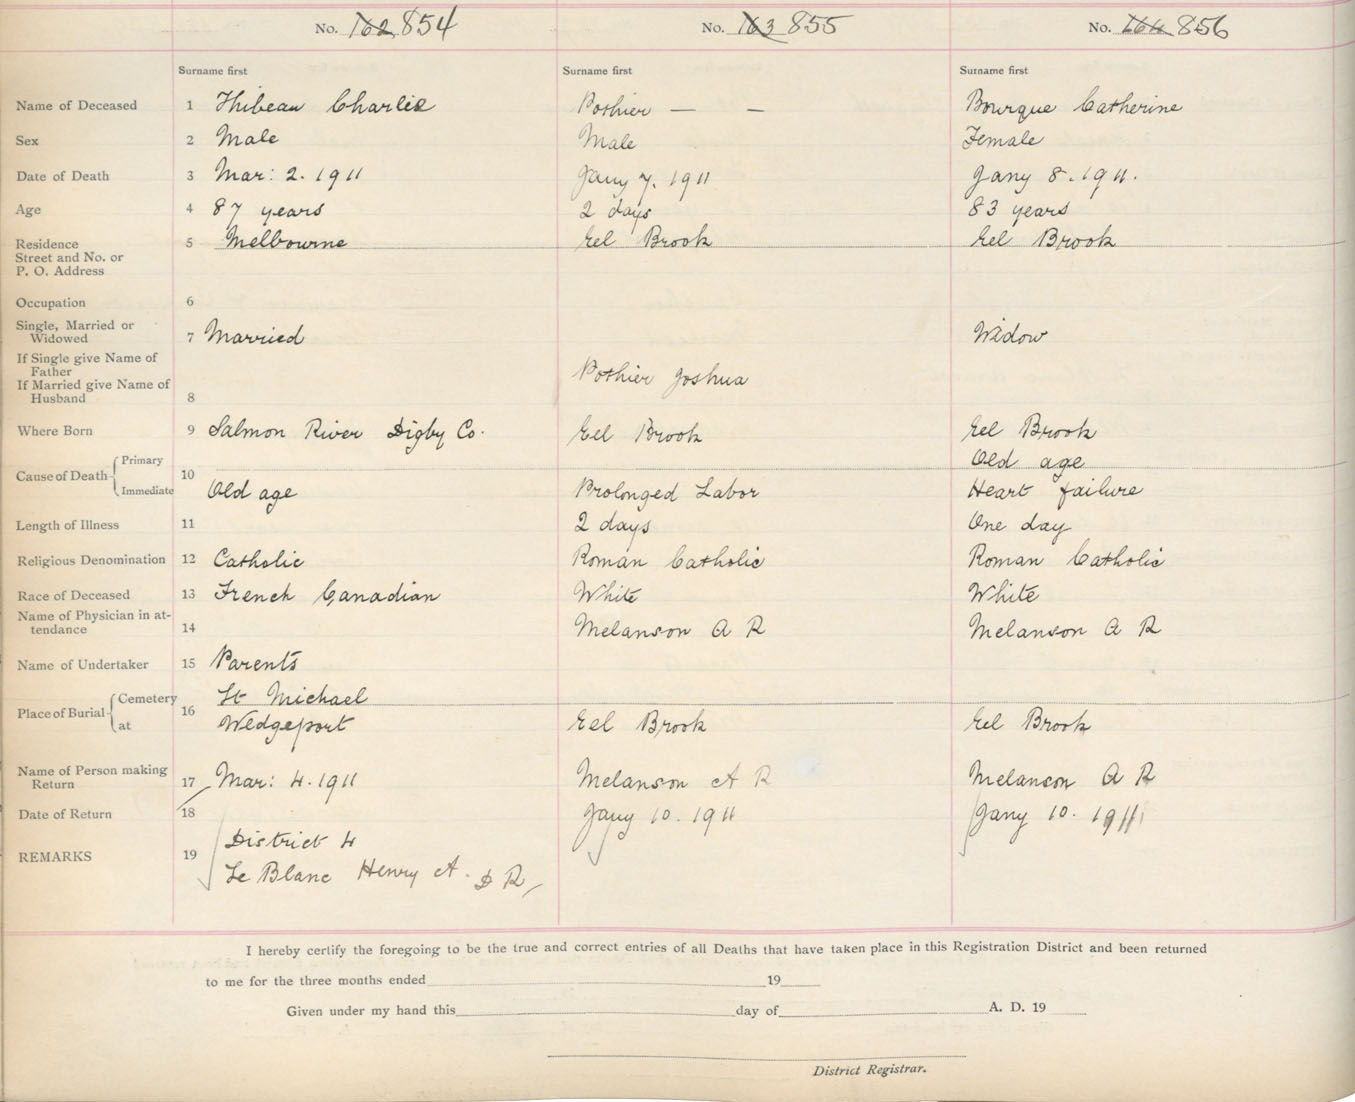 No. 162 854 No. 163 855 No. 164 856
Surname first Surname first Surname first
Name of Deceased 1 Thibeau Charlie Pothier — — Bourque Catherine
Sex 2 Male Male Female
Date of Death 3 Mar: 2. 1911 Jany 7. 1911 Jany 8. 1911.
Age 4 87 years 2 days 83 years
Residence 5 Melbourne Eel Brook Eel Brook
Street and No. or
P. O. Address
Occupation 6
Single, Married or
Widowed 7 Married Widow
If Single give Name of
Father Pothier Joshua
If Married give Name of
Husband 8
Where Born 9 Salmon River Digby Co. Eel Brook Eel Brook
Cause of Death Primary 10 Old age
Immediate Old age Prolonged Labor Heart failure
Length of Illness 11 2 days One day
Religious Denomination 12 Catholic Roman Catholic Roman Catholic
Race of Deceased 13 French Canadian White White
Name of Physician in at-
tendance 14 Melanson A R Melanson A R
Name of Undertaker 15 Parents
Place of Burial Cemetery 16 St Michael
at Wedgeport Eel Brook Eel Brook
Name of Person making
Return 17 Mar: 4. 1911 Melanson A R Melanson A R
Date of Return 18 Jany 10. 1911 Jany 10. 1911
REMARKS 19 District 4
Le Blanc Henry A. D R
I hereby certify the foregoing to be the true and correct entries of all Deaths that have taken place in this Registration District and been returned
to me for the three months ended 19
Given under my hand this day of A. D. 19
District Registrar.